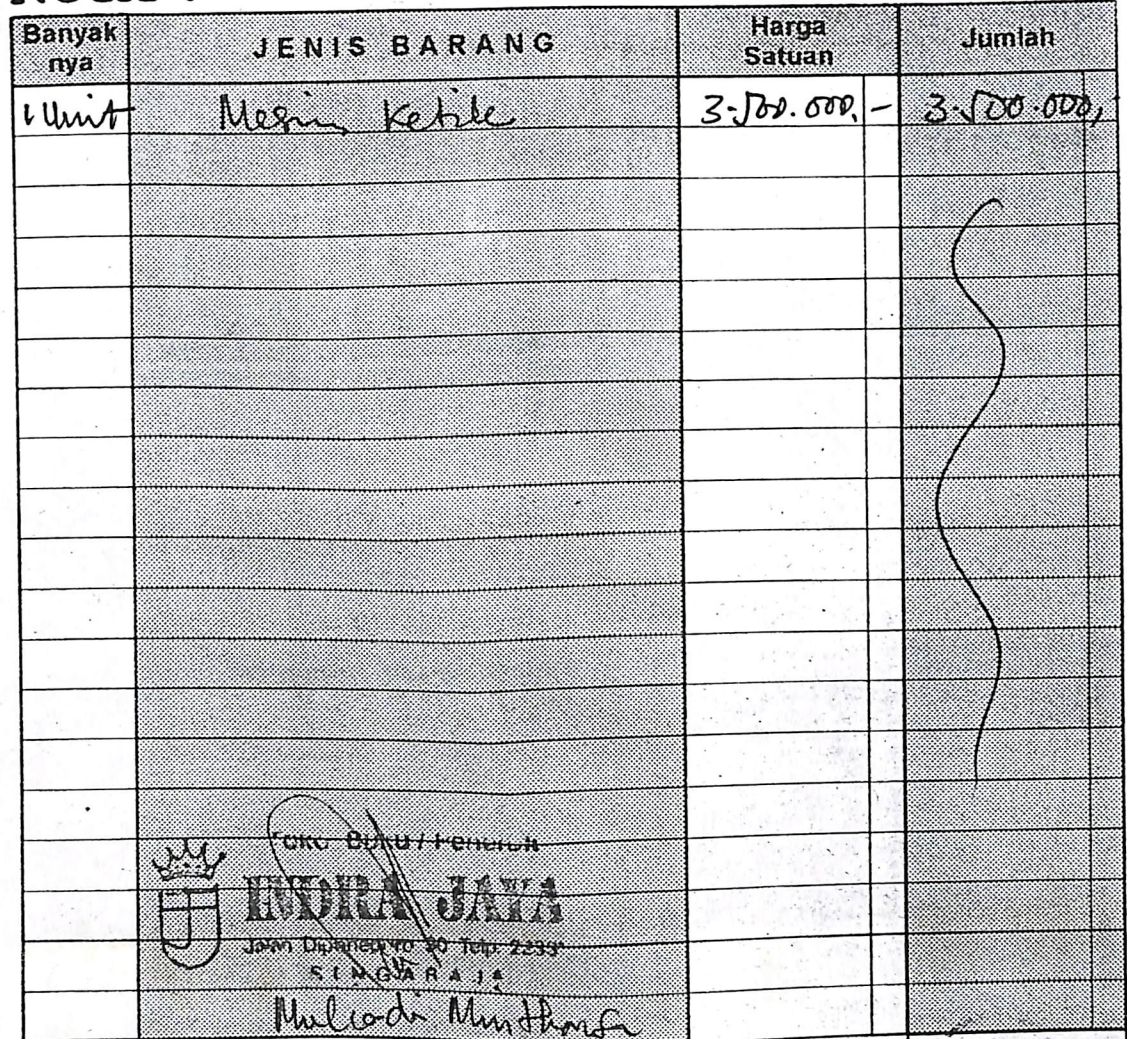 Banyak nya JENIS BARANG Harga Satuan Jumlah
1 Unit Mesin Ketik 3.500.000,- 3.500.000,
Toko Buku / Penerbit
INDRA JAYA
Jalan Diponegoro 30 Telp.
SINGARAJA